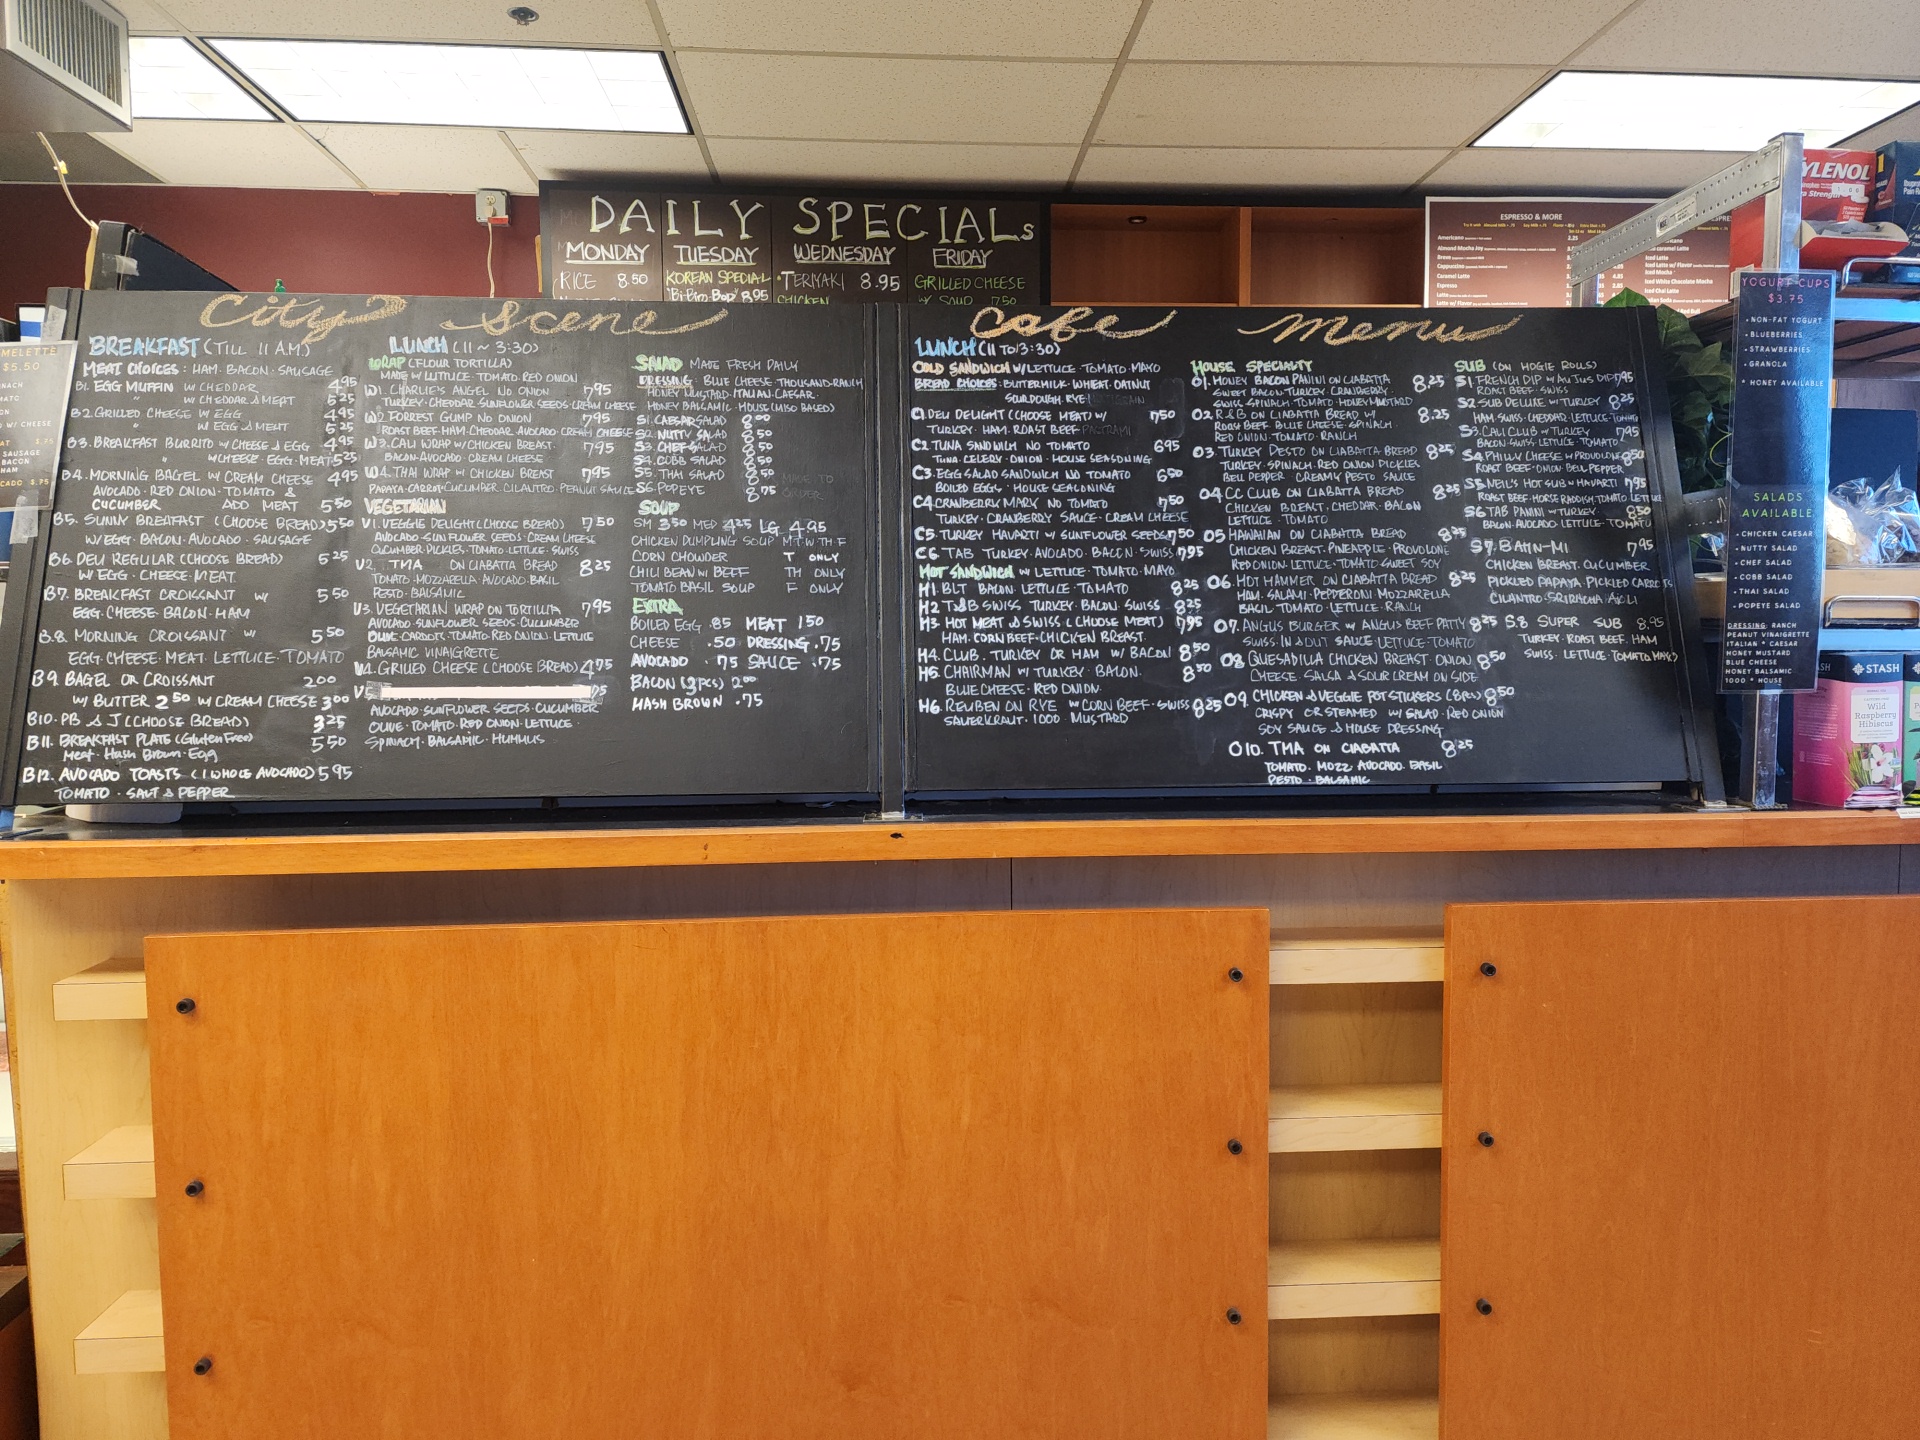 DAILY SPECIALs
MONDAY
RICE 8.50
TUESDAY
KOREAN SPECIAL
'Bi-Bim-Bop' 8.95
WEDNESDAY
TERIYAKI 8.95
CHICKEN
FRIDAY
GRILLED CHEESE
W/ SOUP 7.50
City Scene Cafe Menu
BREAKFAST (TILL 11 A.M.)
MEAT CHOICES: HAM. BACON. SAUSAGE
B1. EGG MUFFIN W/ CHEDDAR 4.95
" W/ CHEDDAR & MEAT 5.25
B2. GRILLED CHEESE W/ EGG 4.95
" W/ EGG & MEAT 5.25
B3. BREAKFAST BURRITO W/ CHEESE & EGG 4.95
" W/ CHEESE. EGG. MEAT 5.25
B4. MORNING BAGEL W/ CREAM CHEESE 4.95
AVOCADO. RED ONION. TOMATO &
CUCUMBER ADD MEAT 5.50
B5. SUNNY BREAKFAST (CHOOSE BREAD) 5.50
W/ EGG. BACON. AVOCADO. SAUSAGE
B6. DELI REGULAR (CHOOSE BREAD) 5.25
W/ EGG. CHEESE. MEAT
B7. BREAKFAST CROISSANT W/ 5.50
EGG. CHEESE. BACON. HAM
B.8. MORNING CROISSANT W/ 5.50
EGG. CHEESE. MEAT. LETTUCE. TOMATO
B9. BAGEL OR CROISSANT 2.00
W/ BUTTER 2.50 W/ CREAM CHEESE 3.00
B10. PB & J (CHOOSE BREAD) 3.25
B11. BREAKFAST PLATE (Gluten Free) 5.50
Meat. Hash Brown. Egg
B12. AVOCADO TOASTS (1 WHOLE AVOCADO) 5.95
TOMATO. SALT & PEPPER
LUNCH (11 ~ 3:30)
WRAP (FLOUR TORTILLA)
MADE W/ LUTTUCE. TOMATO. RED ONION
W1. CHARLIE'S ANGEL NO ONION 7.95
TURKEY. CHEDDAR. SUNFLOWER SEEDS. CREAM CHEESE
W2. FORREST GUMP NO ONION 7.95
ROAST BEEF. HAM. CHEDDAR. AVOCADO. CREAM CHEESE
W3. CALI WRAP W/ CHICKEN BREAST. 7.95
BACON. AVOCADO. CREAM CHEESE
W4. THAI WRAP W/ CHICKEN BREAST 7.95
PAPAYA. CARROT. CUCUMBER. CILANTRO. PEANUT SAUCE
VEGETARIAN
V1. VEGGIE DELIGHT (CHOOSE BREAD) 7.50
AVOCADO. SUNFLOWER SEEDS. CREAM CHEESE
CUCUMBER. PICKLES. TOMATO. LETTUCE. SWISS
V2. TMA ON CIABATTA BREAD 8.25
TOMATO. MOZZARELLA. AVOCADO. BASIL
PESTO. BALSAMIC
V3. VEGETARIAN WRAP ON TORTILLA 7.95
AVOCADO. SUNFLOWER SEEDS. CUCUMBER
OLIVE. CARROTS. TOMATO. RED ONION. LETTUCE
BALSAMIC VINAIGRETTE
V4. GRILLED CHEESE (CHOOSE BREAD) 4.75
AVOCADO. SUNFLOWER SEEDS. CUCUMBER
OLIVE. TOMATO. RED ONION. LETTUCE.
SPINACH. BALSAMIC. HUMMUS
SALAD MADE FRESH DAILY
DRESSING: BLUE CHEESE. THOUSAND. RANCH
HONEY MUSTARD. ITALIAN. CAESAR.
HONEY BALSAMIC. HOUSE (MISO BASED)
S1. CAESAR SALAD 8.00
S2. NUTTY SALAD 8.50
S3. CHEF SALAD 8.50
S4. COBB SALAD 8.50
S5. THAI SALAD 8.50
S6. POPEYE 8.75
MADE TO
ORDER
SOUP
SM 3.50 MED 4.25 LG 4.95
CHICKEN DUMPLING SOUP M.T.W.TH.F
CORN CHOWDER T ONLY
CHILI BEAN W/ BEEF TH ONLY
TOMATO BASIL SOUP F ONLY
EXTRA
BOILED EGG .85 MEAT 1.50
CHEESE .50 DRESSING .75
AVOCADO .75 SAUCE .75
BACON (3 PCS) 2.00
HASH BROWN .75
LUNCH (11 TO 3:30)
COLD SANDWICH W/ LETTUCE. TOMATO. MAYO
BREAD CHOICES: BUTTERMILK. WHEAT. OATNUT
SOURDOUGH. RYE
C1. DELI DELIGHT (CHOOSE MEAT) W/ 7.50
TURKEY. HAM. ROAST BEEF. PASTRAMI
C2. TUNA SANDWICH NO TOMATO 6.95
TUNA. CELERY. ONION. HOUSE SEASONING
C3. EGG SALAD SANDWICH NO TOMATO 6.50
BOILED EGGS. HOUSE SEASONING
C4. CRANBERRY MARY NO TOMATO 7.50
TURKEY. CRANBERRY SAUCE. CREAM CHEESE
C5. TURKEY HAVARTI W/ SUNFLOWER SEEDS 7.50
C6. TAB TURKEY. AVOCADO. BACON. SWISS 7.95
HOT SANDWICH W/ LETTUCE. TOMATO. MAYO
H1 BLT BACON. LETTUCE. TOMATO 8.25
H2 T&B SWISS TURKEY. BACON. SWISS 8.25
H3. HOT MEAT & SWISS (CHOOSE MEAT) 7.95
HAM. CORN BEEF. CHICKEN BREAST.
H4. CLUB. TURKEY OR HAM W/ BACON 8.50
H5. CHAIRMAN W/ TURKEY. BACON. 8.50
BLUE CHEESE. RED ONION.
H6. REUBEN ON RYE W/ CORN BEEF. SWISS 8.25
SAUERKRAUT. 1000. MUSTARD
HOUSE SPECIALTY
O1. HONEY BACON PANINI ON CIABATTA 8.25
SWEET BACON. TURKEY. CRANBERRY.
SWISS. SPINACH. TOMATO. HONEY MUSTARD
O2. R&B ON CIABATTA BREAD W/ 8.25
ROAST BEEF. BLUE CHEESE. SPINACH.
RED ONION. TOMATO. RANCH
O3. TURKEY PESTO ON CIABATTA BREAD 8.25
TURKEY. SPINACH. RED ONION. PICKLES
BELL PEPPER. CREAMY PESTO SAUCE
O4. CC CLUB ON CIABATTA BREAD 8.25
CHICKEN BREAST. CHEDDAR. BACON
LETTUCE. TOMATO
O5 HAWAIIAN ON CIABATTA BREAD 8.25
CHICKEN BREAST. PINEAPPLE. PROVOLONE
RED ONION. LETTUCE. TOMATO. SWEET SOY
O6. HOT HAMMER ON CIABATTA BREAD 8.25
HAM. SALAMI. PEPPERONI. MOZZARELLA
BASIL. TOMATO. LETTUCE. RANCH
O7. ANGUS BURGER W/ ANGUS BEEF PATTY 8.25
SWISS. IN & OUT SAUCE. LETTUCE. TOMATO
O8 QUESADILLA CHICKEN BREAST. ONION 8.50
CHEESE. SALSA & SOUR CREAM ON SIDE
O9. CHICKEN & VEGGIE POTSTICKERS (8PCS) 8.50
CRISPY OR STEAMED W/ SALAD. RED ONION
SOY SAUCE & HOUSE DRESSING
O10. TMA ON CIABATTA 8.25
TOMATO. MOZZ. AVOCADO. BASIL
PESTO. BALSAMIC
SUB (ON HOGIE ROLLS)
S1 FRENCH DIP W/ AU JUS DIP 7.95
ROAST BEEF. SWISS
S2. SUB DELUXE W/ TURKEY 8.25
HAM. SWISS. CHEDDAR. LETTUCE. TOMATO
S3. CALI CLUB W/ TURKEY 7.95
BACON. SWISS. LETTUCE. TOMATO
S4. PHILLY CHEESE W/ PROVOLONE 8.50
ROAST BEEF. ONION. BELL PEPPER
S5. NEIL'S HOT SUB W/ HAVARTI 7.95
ROAST BEEF. HORSE RADDISH. TOMATO. LETTUCE
S6 TAB PANINI W/ TURKEY. 8.50
BACON. AVOCADO. LETTUCE. TOMATO
S7. BAHN-MI 7.95
CHICKEN BREAST. CUCUMBER
PICKLED PAPAYA. PICKLED CARROTS
CILANTRO. SRIRACHA. AIOLI
S.8 SUPER SUB 8.95
TURKEY. ROAST BEEF. HAM
SWISS. LETTUCE. TOMATO. MAYO
ESPRESSO & MORE
Americano 2.25
Almond Mocha Joy
Breve
Cappuccino
Caramel Latte
Espresso
Latte
Latte w/ Flavor
Iced Caramel Latte
Iced Latte
Iced Latte w/ Flavor
Iced Mocha
Iced White Chocolate Mocha
Iced Chai Latte
YOGURT CUPS
$3.75
• NON-FAT YOGURT
• BLUEBERRIES
• STRAWBERRIES
• GRANOLA
* HONEY AVAILABLE
SALADS
AVAILABLE
• CHICKEN CAESAR
• NUTTY SALAD
• CHEF SALAD
• COBB SALAD
• THAI SALAD
• POPEYE SALAD
DRESSING: RANCH
PEANUT VINAIGRETTE
ITALIAN * CAESAR
HONEY MUSTARD
BLUE CHEESE
HONEY BALSAMIC
1000 * HOUSE
TYLENOL
STASH
Wild
Raspberry
Hibiscus
$5.50